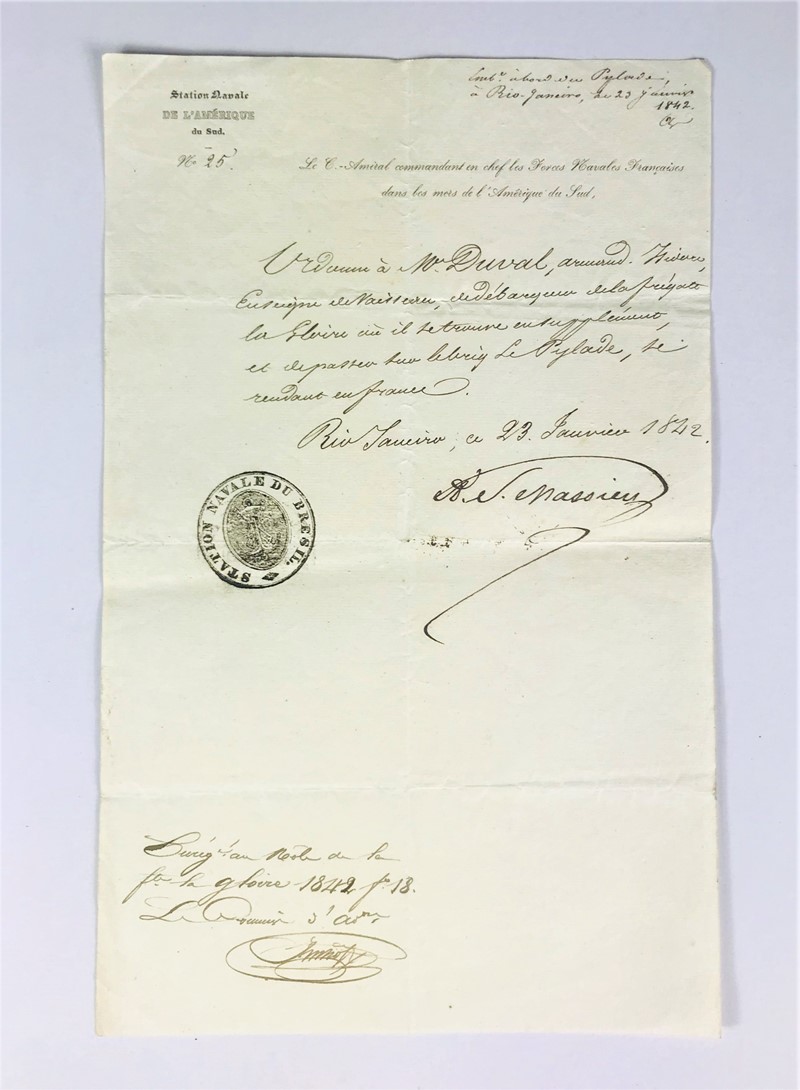 Station Navale
DE L'AMÉRIQUE
du Sud.
N° 25.
Emb.é à bord du Pylade,
à Rio-Janeiro, le 23 janvier
1842.
Le C.-Amiral commandant en chef les Forces Navales Françaises
dans les mers de l'Amérique du Sud,
Ordonne à Mr. Duval, armand
Enseigne de Vaisseau, de débarquer de la frégate
la Gloire où il se trouve en supplément,
et de passer sur le brig Le Pylade, se
rendant en france.
Rio Janeiro, ce 23 Janvier 1842.
Massieu
STATION NAVALE DU BRESIL
au Rôle de la
la gloire 1842 f° 18.
Le